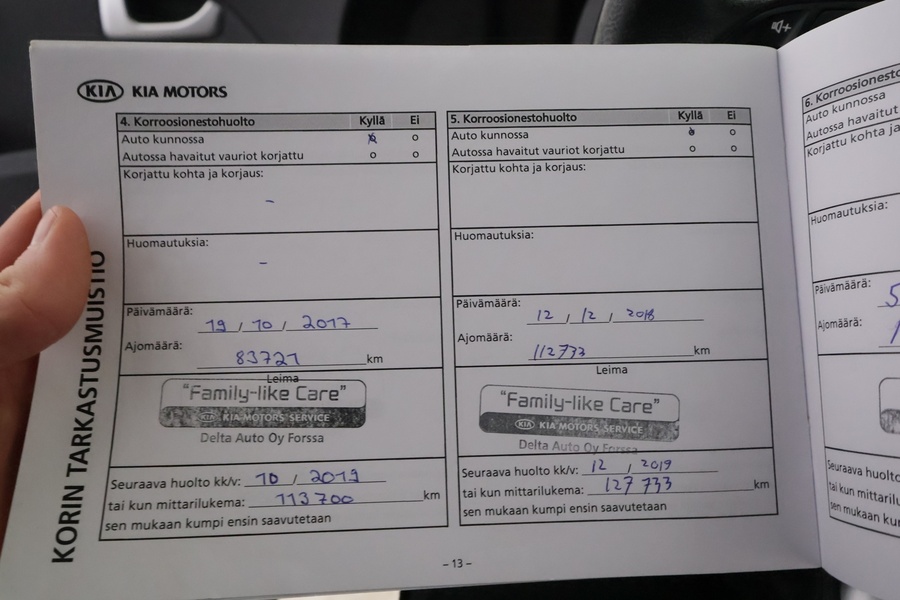 KIA KIA MOTORS
KORIN TARKASTUSMUISTIO
4. Korroosionestohuolto Kyllä Ei
Auto kunnossa
Autossa havaitut vauriot korjattu
Korjattu kohta ja korjaus:
-
Huomautuksia:
-
Päivämäärä:
19 / 10 / 2017
Ajomäärä:
83721 km
Leima
"Family-like Care"
KIA KIA MOTORS SERVICE
Delta Auto Oy Forssa
Seuraava huolto kk/v: 10 / 2019
tai kun mittarilukema: 113700 km
sen mukaan kumpi ensin saavutetaan
5. Korroosionestohuolto Kyllä Ei
Auto kunnossa
Autossa havaitut vauriot korjattu
Korjattu kohta ja korjaus:
Huomautuksia:
Päivämäärä:
12 / 12 / 2018
Ajomäärä:
112733 km
Leima
"Family-like Care"
KIA KIA MOTORS SERVICE
Delta Auto Oy Forssa
Seuraava huolto kk/v: 12 / 2019
tai kun mittarilukema: 127 733 km
sen mukaan kumpi ensin saavutetaan
- 13 -
6. Korroosionesto
Auto kunnossa
Autossa havaitut
Korjattu kohta ja
Huomautuksia:
Päivämäärä:
5
Ajomäärä:
Seuraava huolto
tai kun
sen mukaan